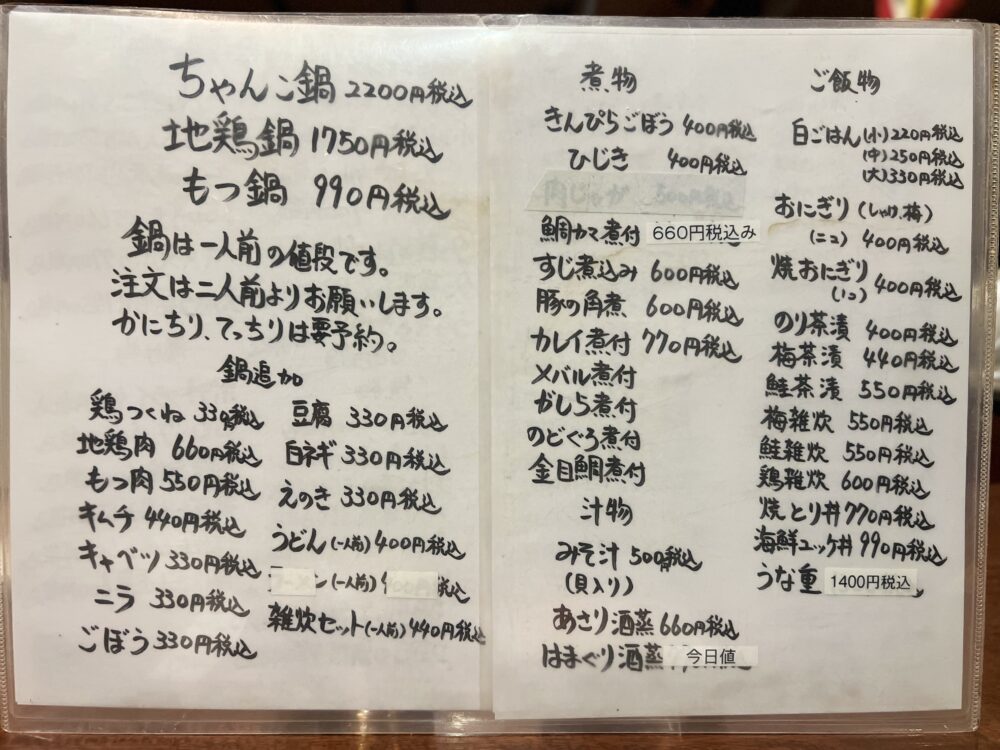 ちゃんこ鍋 2200円税込
地鶏鍋 1750円税込
もつ鍋 990円税込
鍋は一人前の値段です。
注文は二人前よりお願いします。
かにちり、てっちりは要予約。
鍋追加
鶏つくね 330円税込
地鶏肉 660円税込
もつ肉 550円税込
キムチ 440円税込
キャベツ 330円税込
ニラ 330円税込
ごぼう 330円税込
豆腐 330円税込
白ネギ 330円税込
えのき 330円税込
うどん(一人前) 400円税込
ン(一人前) 税込
雑炊セット(一人前) 440円税込
煮物
きんぴらごぼう 400円税込
ひじき 400円税込
肉じゃが 500円税込
鯛カマ煮付 660円税込み
すじ煮込み 600円税込
豚の角煮 600円税込
カレイ煮付 770円税込
メバル煮付
がしら煮付
のどぐろ煮付
金目鯛煮付
汁物
みそ汁 500円税込
(貝入り)
あさり酒蒸 660円税込
はまぐり酒蒸 今日値
ご飯物
白ごはん(小) 220円税込
(中) 250円税込
(大) 330円税込
おにぎり(しゃけ、梅)
(ニコ) 400円税込
焼おにぎり 400円税込
のり茶漬 400円税込
梅茶漬 440円税込
鮭茶漬 550円税込
梅雑炊 550円税込
鮭雑炊 550円税込
鶏雑炊 600円税込
焼とり丼 770円税込
海鮮ユッケ丼 990円税込
うな重 1400円税込